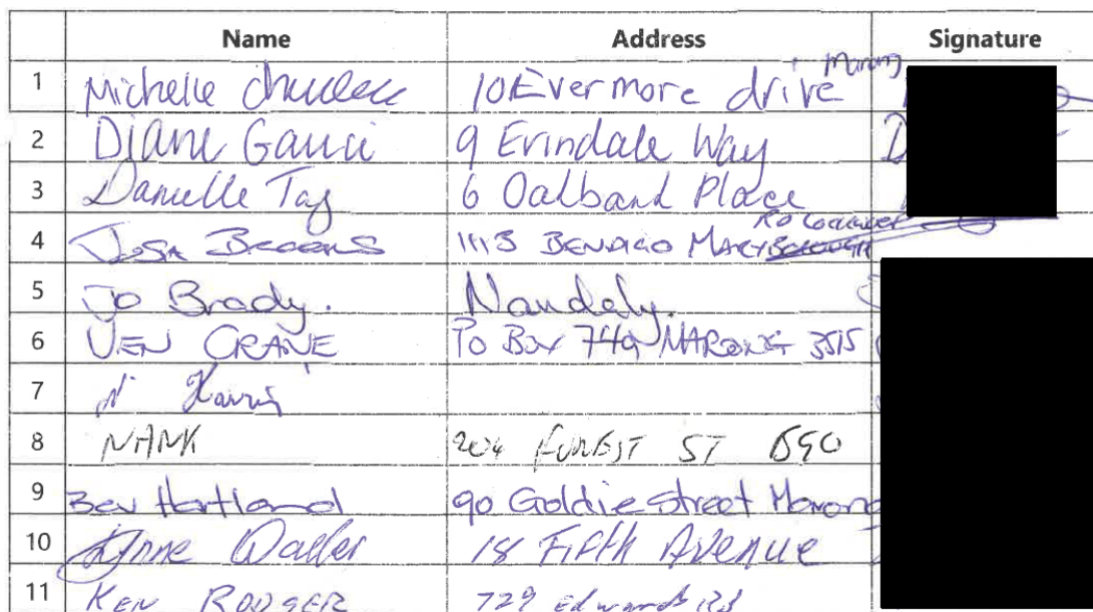 Name Address Signature
1 Michelle 10 Evermore drive Marong
2 Diane Gauci 9 Erindale Way
3 Danielle Tay 6 Oalband Place
4 Josh 1113 BENDIGO MARYBOROUGH RD
5 Jo Brady. Nandaly.
6 JEN CRANE PO Box 749 MARONG 3515
7 Harris
8 NANK 204 FOREST ST BGO
9 Bev Hartland 90 Goldie Street Marong
10 Anne Waller 18 Fifth Avenue
11 KEN RODGER 729 Edwards Rd